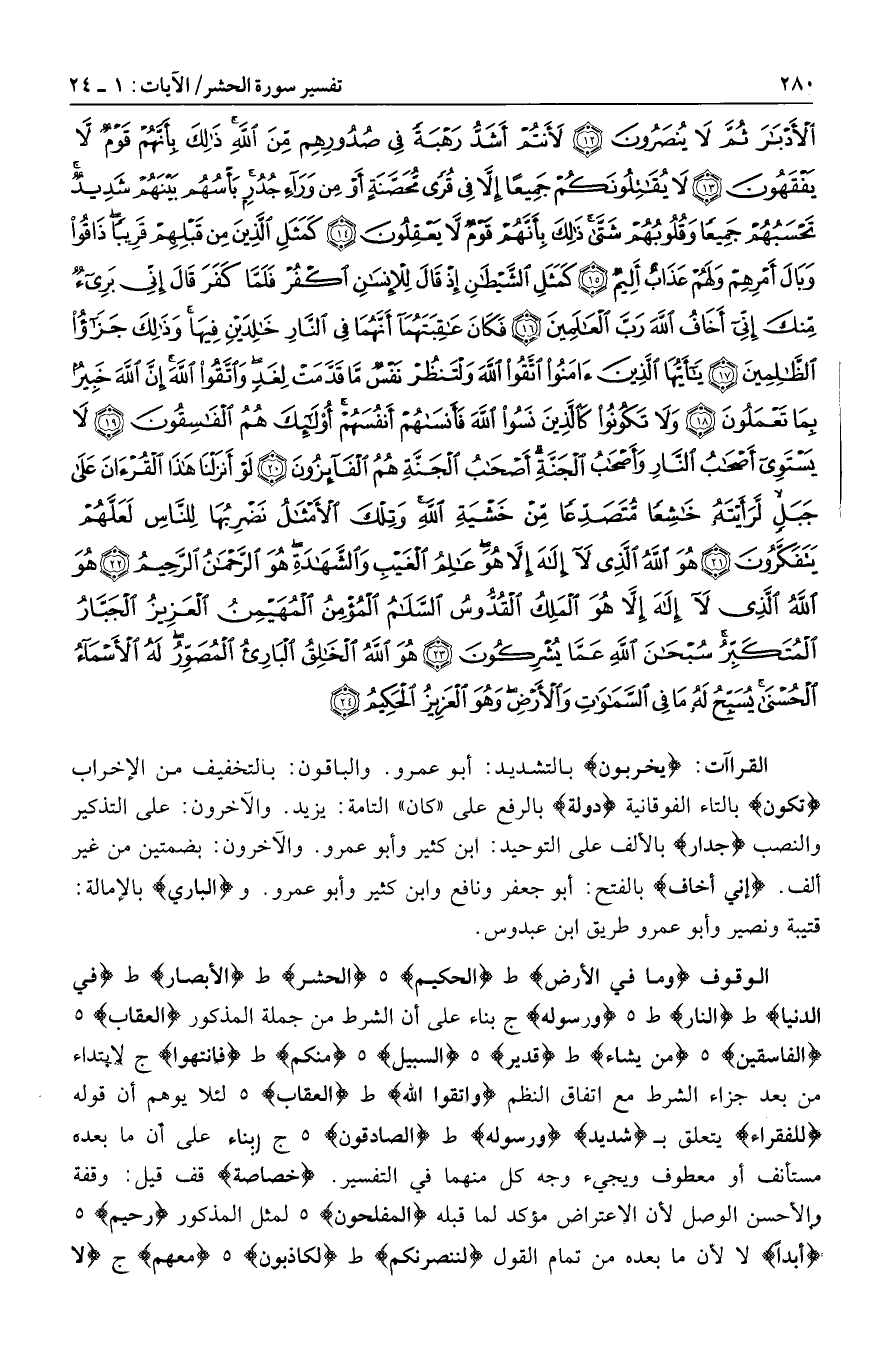 ٢٨٠ تفسير سورة الحشر/ الآيات: ١ ـ ٢٤
ٱلْأَدْبَٰرَ ثُمَّ لَا يُنصَرُونَ ﴿١٢﴾ لَأَنتُمْ أَشَدُّ رَهْبَةً فِى صُدُورِهِم مِّنَ ٱللَّهِ ۚ ذَٰلِكَ بِأَنَّهُمْ قَوْمٌ لَّا
يَفْقَهُونَ ﴿١٣﴾ لَا يُقَٰتِلُونَكُمْ جَمِيعًا إِلَّا فِى قُرًى مُّحَصَّنَةٍ أَوْ مِن وَرَآءِ جُدُرٍۭ ۚ بَأْسُهُم بَيْنَهُمْ شَدِيدٌ ۚ
تَحْسَبُهُمْ جَمِيعًا وَقُلُوبُهُمْ شَتَّىٰ ۚ ذَٰلِكَ بِأَنَّهُمْ قَوْمٌ لَّا يَعْقِلُونَ ﴿١٤﴾ كَمَثَلِ ٱلَّذِينَ مِن قَبْلِهِمْ قَرِيبًا ۖ ذَاقُوا۟
وَبَالَ أَمْرِهِمْ وَلَهُمْ عَذَابٌ أَلِيمٌ ﴿١٥﴾ كَمَثَلِ ٱلشَّيْطَٰنِ إِذْ قَالَ لِلْإِنسَٰنِ ٱكْفُرْ فَلَمَّا كَفَرَ قَالَ إِنِّى بَرِىٓءٌ
مِّنكَ إِنِّىٓ أَخَافُ ٱللَّهَ رَبَّ ٱلْعَٰلَمِينَ ﴿١٦﴾ فَكَانَ عَٰقِبَتَهُمَآ أَنَّهُمَا فِى ٱلنَّارِ خَٰلِدَيْنِ فِيهَا ۚ وَذَٰلِكَ جَزَٰٓؤُا۟
ٱلظَّٰلِمِينَ ﴿١٧﴾ يَٰٓأَيُّهَا ٱلَّذِينَ ءَامَنُوا۟ ٱتَّقُوا۟ ٱللَّهَ وَلْتَنظُرْ نَفْسٌ مَّا قَدَّمَتْ لِغَدٍ ۖ وَٱتَّقُوا۟ ٱللَّهَ ۚ إِنَّ ٱللَّهَ خَبِيرٌۢ
بِمَا تَعْمَلُونَ ﴿١٨﴾ وَلَا تَكُونُوا۟ كَٱلَّذِينَ نَسُوا۟ ٱللَّهَ فَأَنسَىٰهُمْ أَنفُسَهُمْ ۚ أُو۟لَٰٓئِكَ هُمُ ٱلْفَٰسِقُونَ ﴿١٩﴾ لَا
يَسْتَوِىٓ أَصْحَٰبُ ٱلنَّارِ وَأَصْحَٰبُ ٱلْجَنَّةِ ۚ أَصْحَٰبُ ٱلْجَنَّةِ هُمُ ٱلْفَآئِزُونَ ﴿٢٠﴾ لَوْ أَنزَلْنَا هَٰذَا ٱلْقُرْءَانَ عَلَىٰ
جَبَلٍ لَّرَأَيْتَهُۥ خَٰشِعًا مُّتَصَدِّعًا مِّنْ خَشْيَةِ ٱللَّهِ ۚ وَتِلْكَ ٱلْأَمْثَٰلُ نَضْرِبُهَا لِلنَّاسِ لَعَلَّهُمْ
يَتَفَكَّرُونَ ﴿٢١﴾ هُوَ ٱللَّهُ ٱلَّذِى لَآ إِلَٰهَ إِلَّا هُوَ ۖ عَٰلِمُ ٱلْغَيْبِ وَٱلشَّهَٰدَةِ ۖ هُوَ ٱلرَّحْمَٰنُ ٱلرَّحِيمُ ﴿٢٢﴾ هُوَ
ٱللَّهُ ٱلَّذِى لَآ إِلَٰهَ إِلَّا هُوَ ٱلْمَلِكُ ٱلْقُدُّوسُ ٱلسَّلَٰمُ ٱلْمُؤْمِنُ ٱلْمُهَيْمِنُ ٱلْعَزِيزُ ٱلْجَبَّارُ
ٱلْمُتَكَبِّرُ ۚ سُبْحَٰنَ ٱللَّهِ عَمَّا يُشْرِكُونَ ﴿٢٣﴾ هُوَ ٱللَّهُ ٱلْخَٰلِقُ ٱلْبَارِئُ ٱلْمُصَوِّرُ ۖ لَهُ ٱلْأَسْمَآءُ
ٱلْحُسْنَىٰ ۚ يُسَبِّحُ لَهُۥ مَا فِى ٱلسَّمَٰوَٰتِ وَٱلْأَرْضِ ۖ وَهُوَ ٱلْعَزِيزُ ٱلْحَكِيمُ ﴿٢٤﴾
القراآت: ﴿يخربون﴾ بالتشديد: أبو عمرو. والباقون: بالتخفيف من الإخراب
﴿تكون﴾ بالتاء الفوقانية ﴿دولة﴾ بالرفع على «كان» التامة: يزيد. والآخرون: على التذكير
والنصب ﴿جدار﴾ بالألف على التوحيد: ابن كثير وأبو عمرو. والآخرون: بضمتين من غير
ألف. ﴿إني أخاف﴾ بالفتح: أبو جعفر ونافع وابن كثير وأبو عمرو. و﴿الباري﴾ بالإمالة:
قتيبة ونصير وأبو عمرو طريق ابن عبدوس.
الوقوف ﴿وما في الأرض﴾ ط ﴿الحكيم﴾ ٥ ﴿الحشر﴾ ط ﴿الأبصار﴾ ط ﴿في
الدنيا﴾ ط ﴿النار﴾ ط ٥ ﴿ورسوله﴾ ج بناء على أن الشرط من جملة المذكور ﴿العقاب﴾ ٥
﴿الفاسقين﴾ ٥ ﴿من يشاء﴾ ط ﴿قدير﴾ ٥ ﴿السبيل﴾ ٥ ﴿منكم﴾ ط ﴿فانتهوا﴾ ج لابتداء
من بعد جزاء الشرط مع اتفاق النظم ﴿واتقوا الله﴾ ط ﴿العقاب﴾ ٥ لئلا يوهم أن قوله
﴿للفقراء﴾ يتعلق بـ ﴿شديد﴾ ﴿ورسوله﴾ ط ﴿الصادقون﴾ ٥ ج بناء على أن ما بعده
مستأنف أو معطوف ويجيء وجه كل منهما في التفسير. ﴿خصاصة﴾ قف قيل: وقفة
والأحسن الوصل لأن الاعتراض مؤكد لما قبله ﴿المفلحون﴾ ٥ لمثل المذكور ﴿رحيم﴾ ٥
﴿أبداً﴾ لا لأن ما بعده من تمام القول ﴿لننصرنكم﴾ ط ﴿لكاذبون﴾ ٥ ﴿معهم﴾ ج ﴿لا